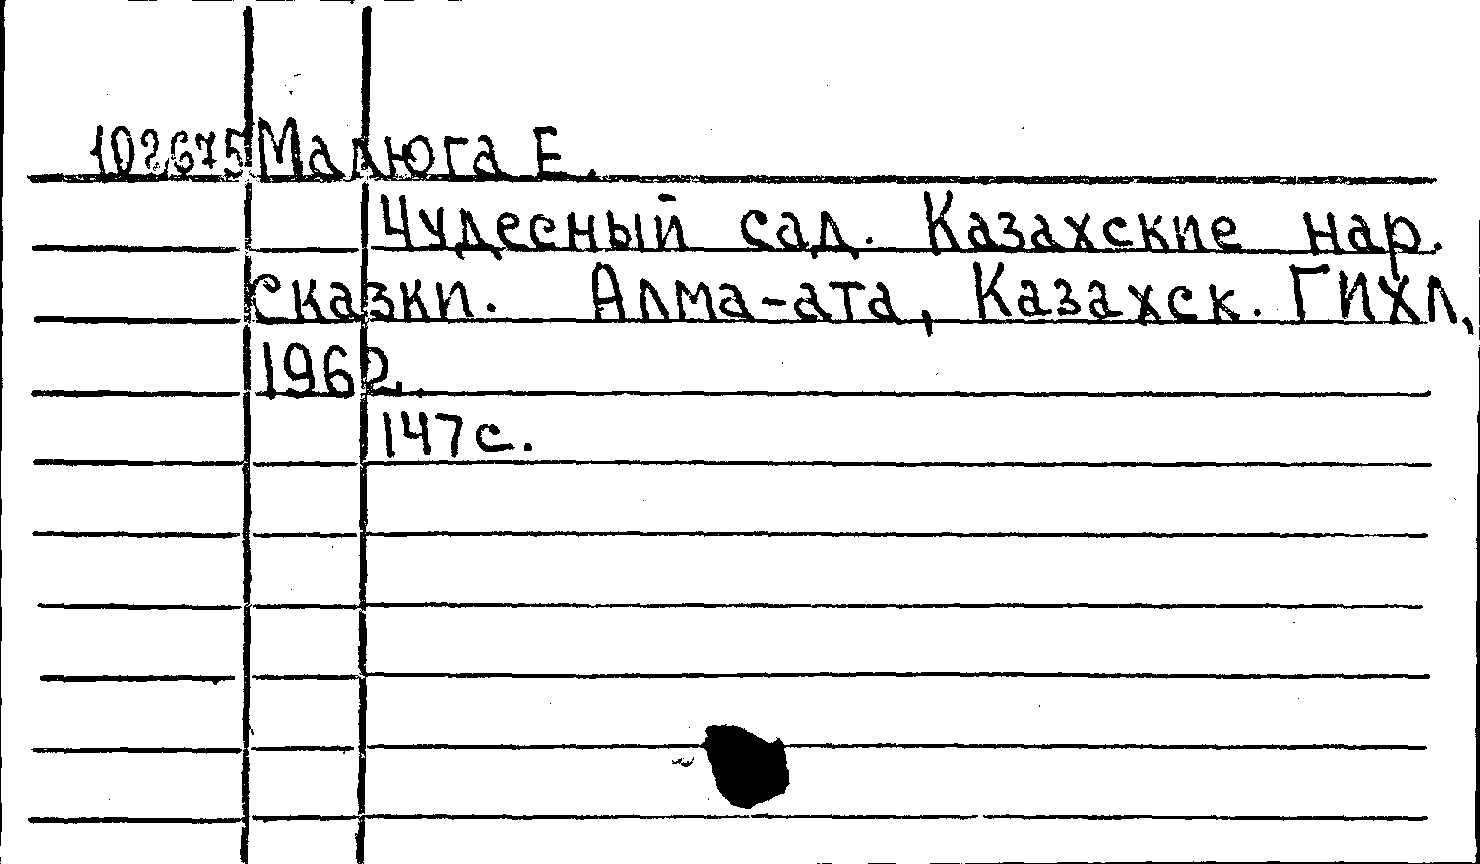 102675 Малюга Е.
Чудесный сад. Казахские нар.
сказки. Алма-ата, Казахск. ГИХЛ,
1962.
147с.